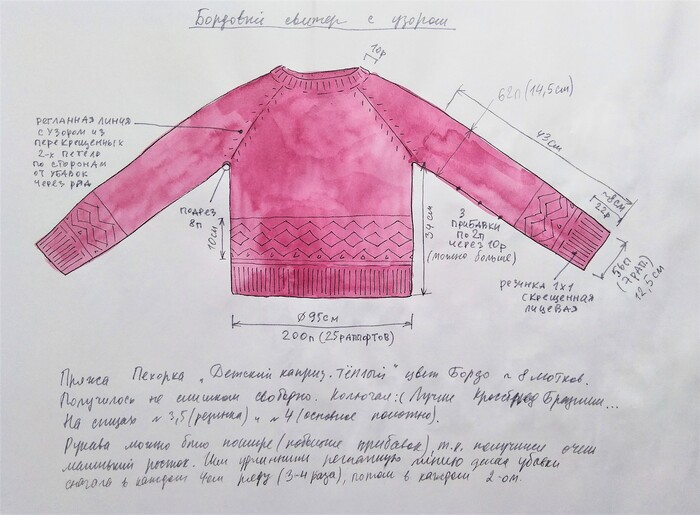 Бордовый свитер с узором
10р
62п (14,5см)
43см
РЕГЛАННАЯ ЛИНИЯ
С УЗОРОМ ИЗ
ПЕРЕКРЕЩЕННЫХ
2-Х ПЕТЕЛЬ
ПО СТОРОНАМ
ОТ УБАВОК
ЧЕРЕЗ РЯД
~8см
25р
ПОДРЕЗ
8п
10см
34 см
3
ПРИБАВКИ
ПО 2п
ЧЕРЕЗ 10р
(можно больше)
56п
(7РАП)
12,5см
РЕЗИНКА 1х1
СКРЕЩЕННАЯ
ЛИЦЕВАЯ
Ø 95см
200п (25 раппортов)
Пряжа Пехорка „Детский каприз. Тёплый" цвет Бордо ~ 8 мотков.
Получилось не слишком свободно. Колючая :( Лучше Кроссбред Бразилии...
На спицах № 3,5 (резинка) и № 4 (основное полотно).
Рукава можно было пошире (побольше прибавок), т.к. получился очень
маленький росток. Или удлинить регланную линию делая убавки
сначала в каждом 4ем ряду (3-4 раза), потом в каждом 2-ом.